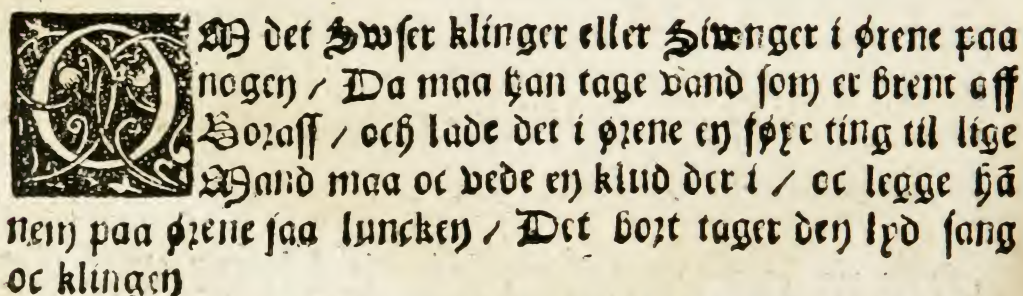 OM det Swser klinger eller Siunger i ørene paa
nogen / Da maa han tage vand som er brent aff
Boraff / och lade det i ørene en føye ting til lige
Mand maa oc vede en klud der i / oc legge hā
nem paa ørene saa luncken / Det bort tager den lyd sang
oc klingen